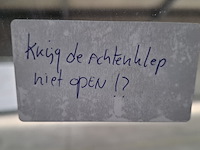 Krijg de achterklep
niet open !?